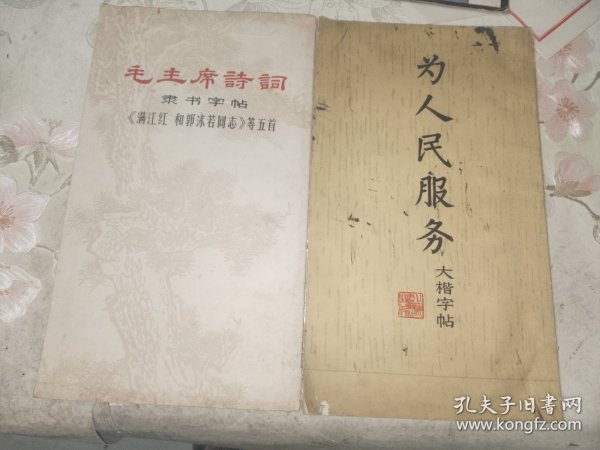 毛主席詩詞
隶书字帖
《满江红 和郭沫若同志》等五首
为人民服务
大楷字帖
孔夫子旧书网
www.kongfz.com